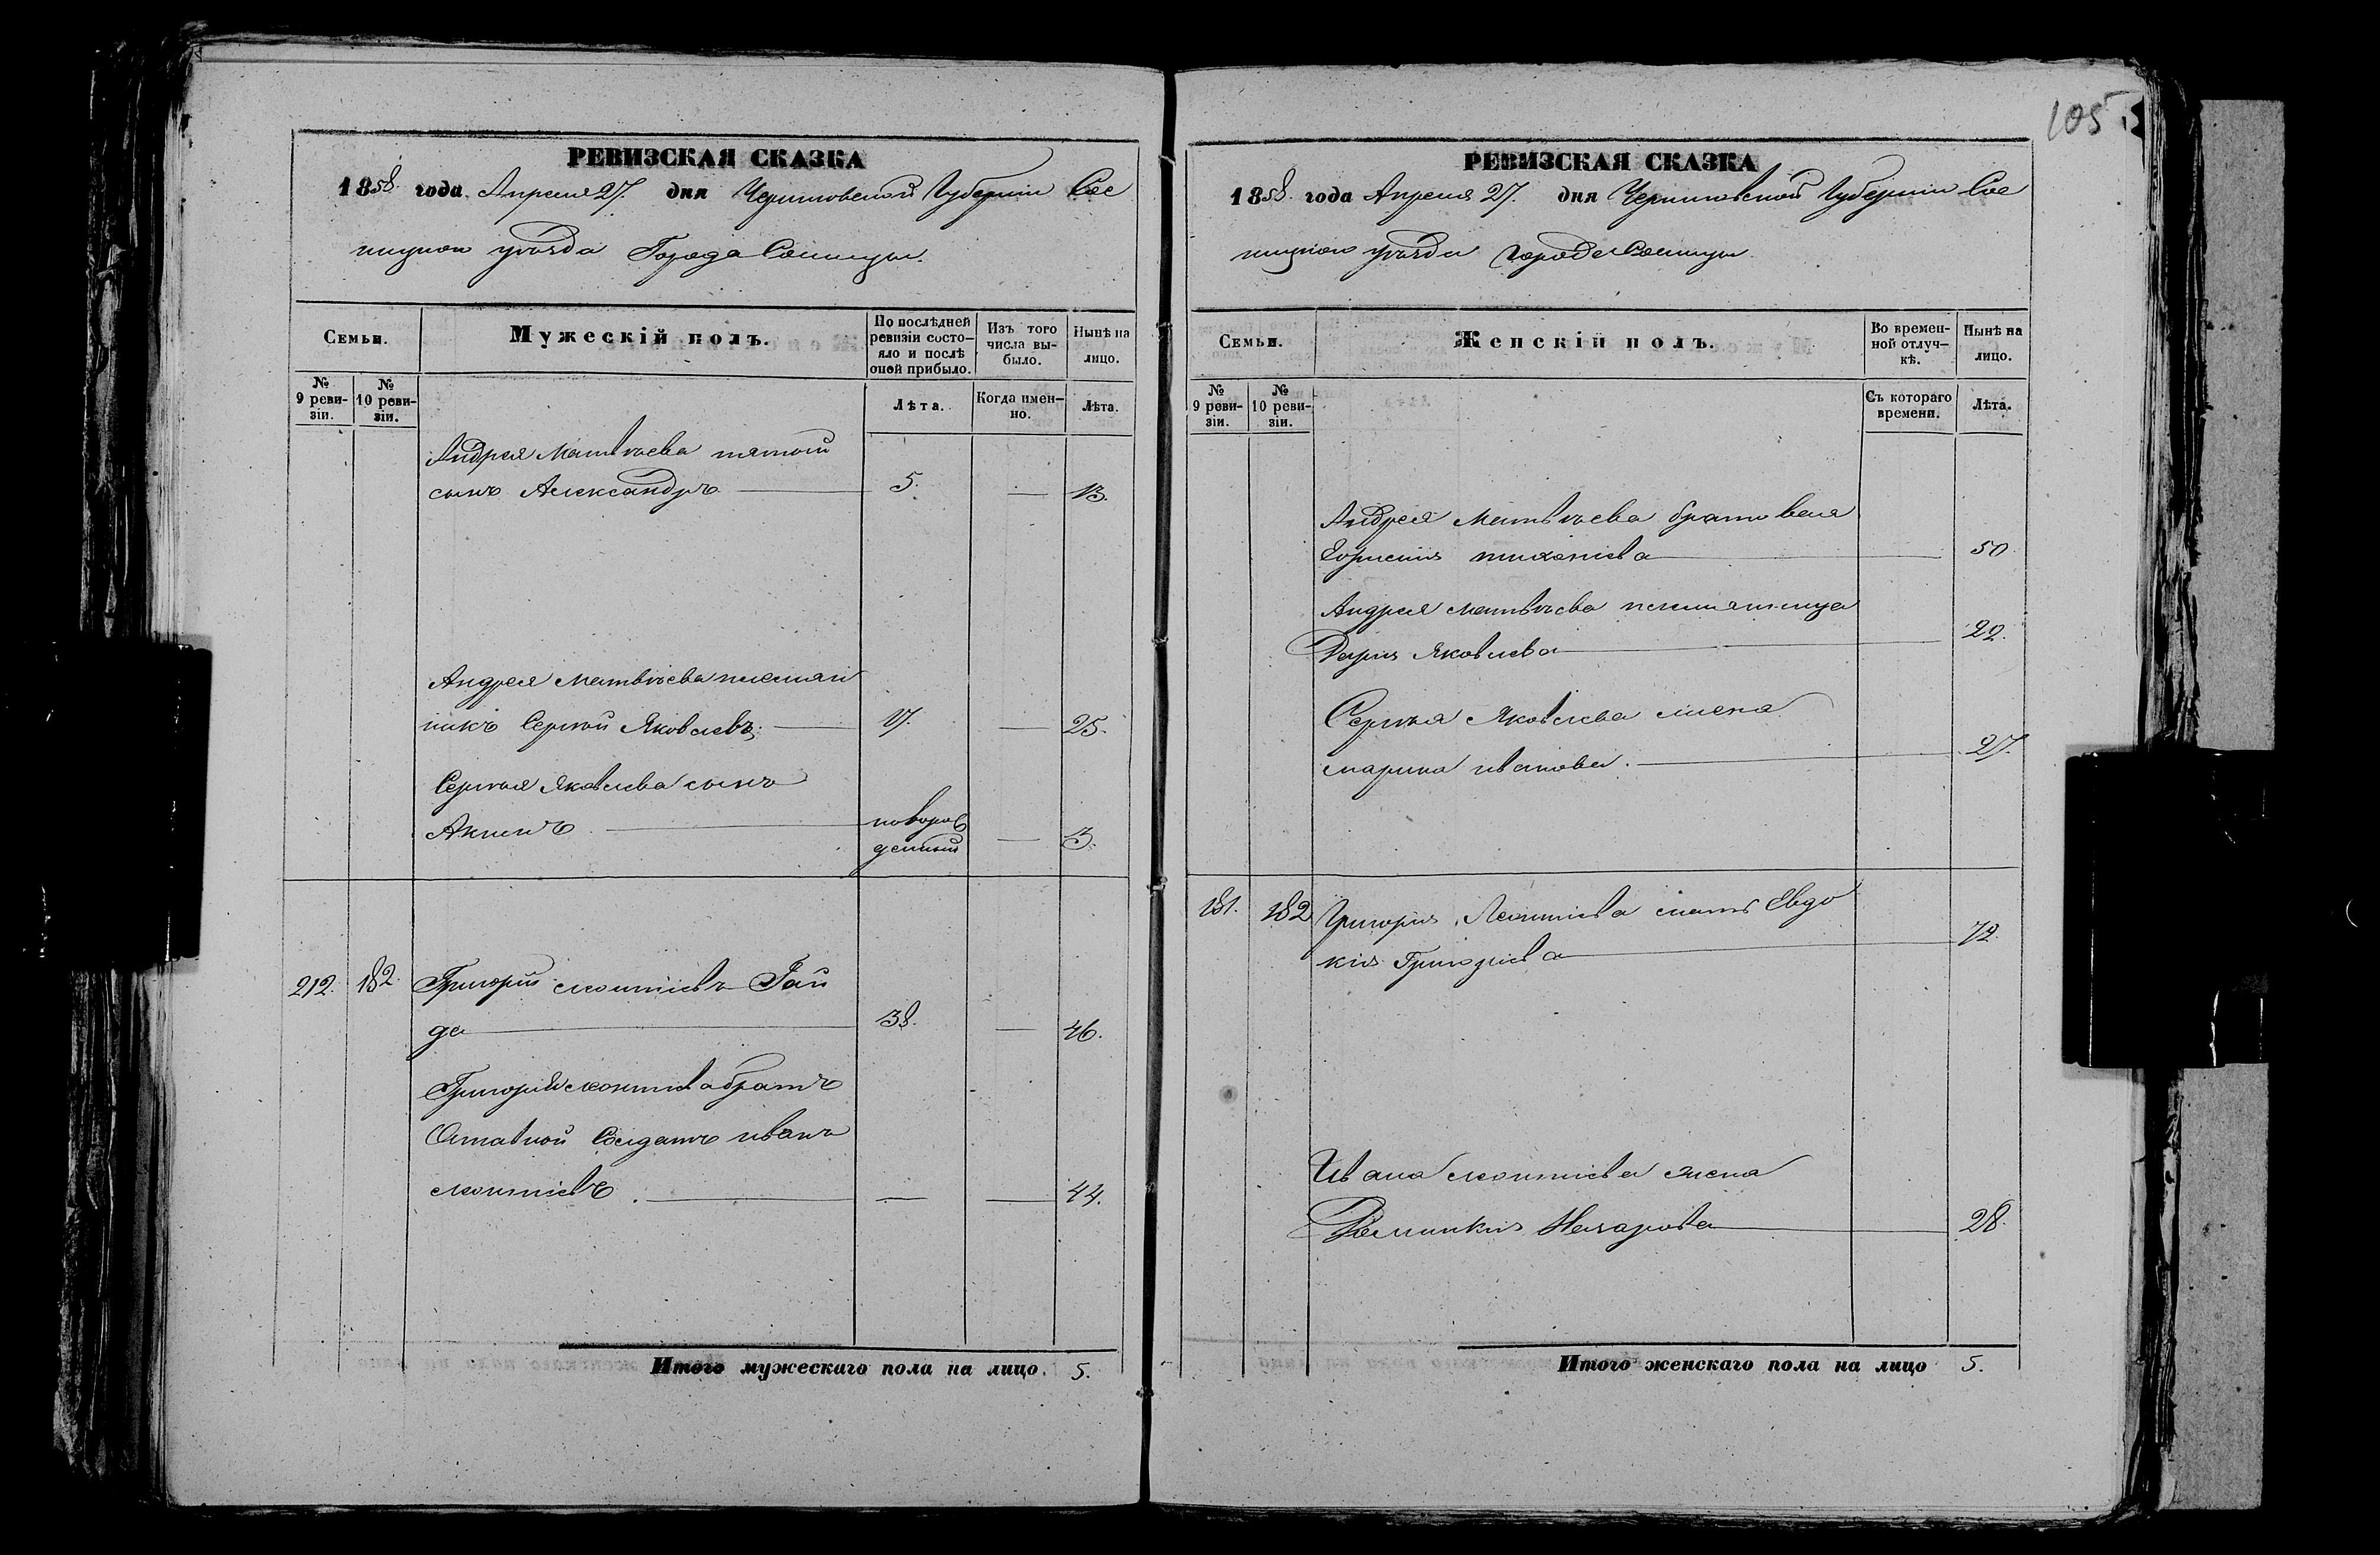 105
РЕВИЗСКАЯ СКАЗКА
1858 года Апреля 27. дня Черниговской Губернии Сос
ницкого уѣзда Города Сосницы.
Семьи.
Мужескій полъ.
По послѣдней ревизіи состояло и послѣ оной прибыло.
Изъ того числа выбыло.
Нынѣ на лицо.
№ 9 ревизіи.
№ 10 ревизіи.
Лѣта.
Когда именно.
Лѣта.
Андрея Матвѣева пятый
сынъ Александръ 5. — 13.
Андрея Матвѣева племян
никъ Сергѣй Яковлевъ 17. — 25.
Сергѣя Яковлева сынъ
Акимъ новорож
денный — 3.
212. 182. Григорій Леонтіевъ Гай
да 38. — 46.
Григорія Леонтіева братъ
Отставной Солдатъ Иванъ
Леонтіевъ. — — 44.
Итого мужескаго пола на лицо. 5.
РЕВИЗСКАЯ СКАЗКА
1858. года Апреля 27. дня Черниговской Губернии Сос
ницкого уѣзда Города Сосницы
Семьи.
Женскій полъ.
Во временной отлучкѣ.
Нынѣ на лицо.
№ 9 ревизіи.
№ 10 ревизіи.
Съ котораго времени.
Лѣта.
Андрея Матвѣева братовая
50
Андрея Матвѣева племянница
Дарія Яковлева 22.
Сергѣя Яковлева жена
Марина Иванова. 27.
181. 182 Григорія Леонтіева мать Евдо
кія Григоріева 72.
Ивана Леонтіева жена
Домникія Назарова 28.
Итого женскаго пола на лицо 5.